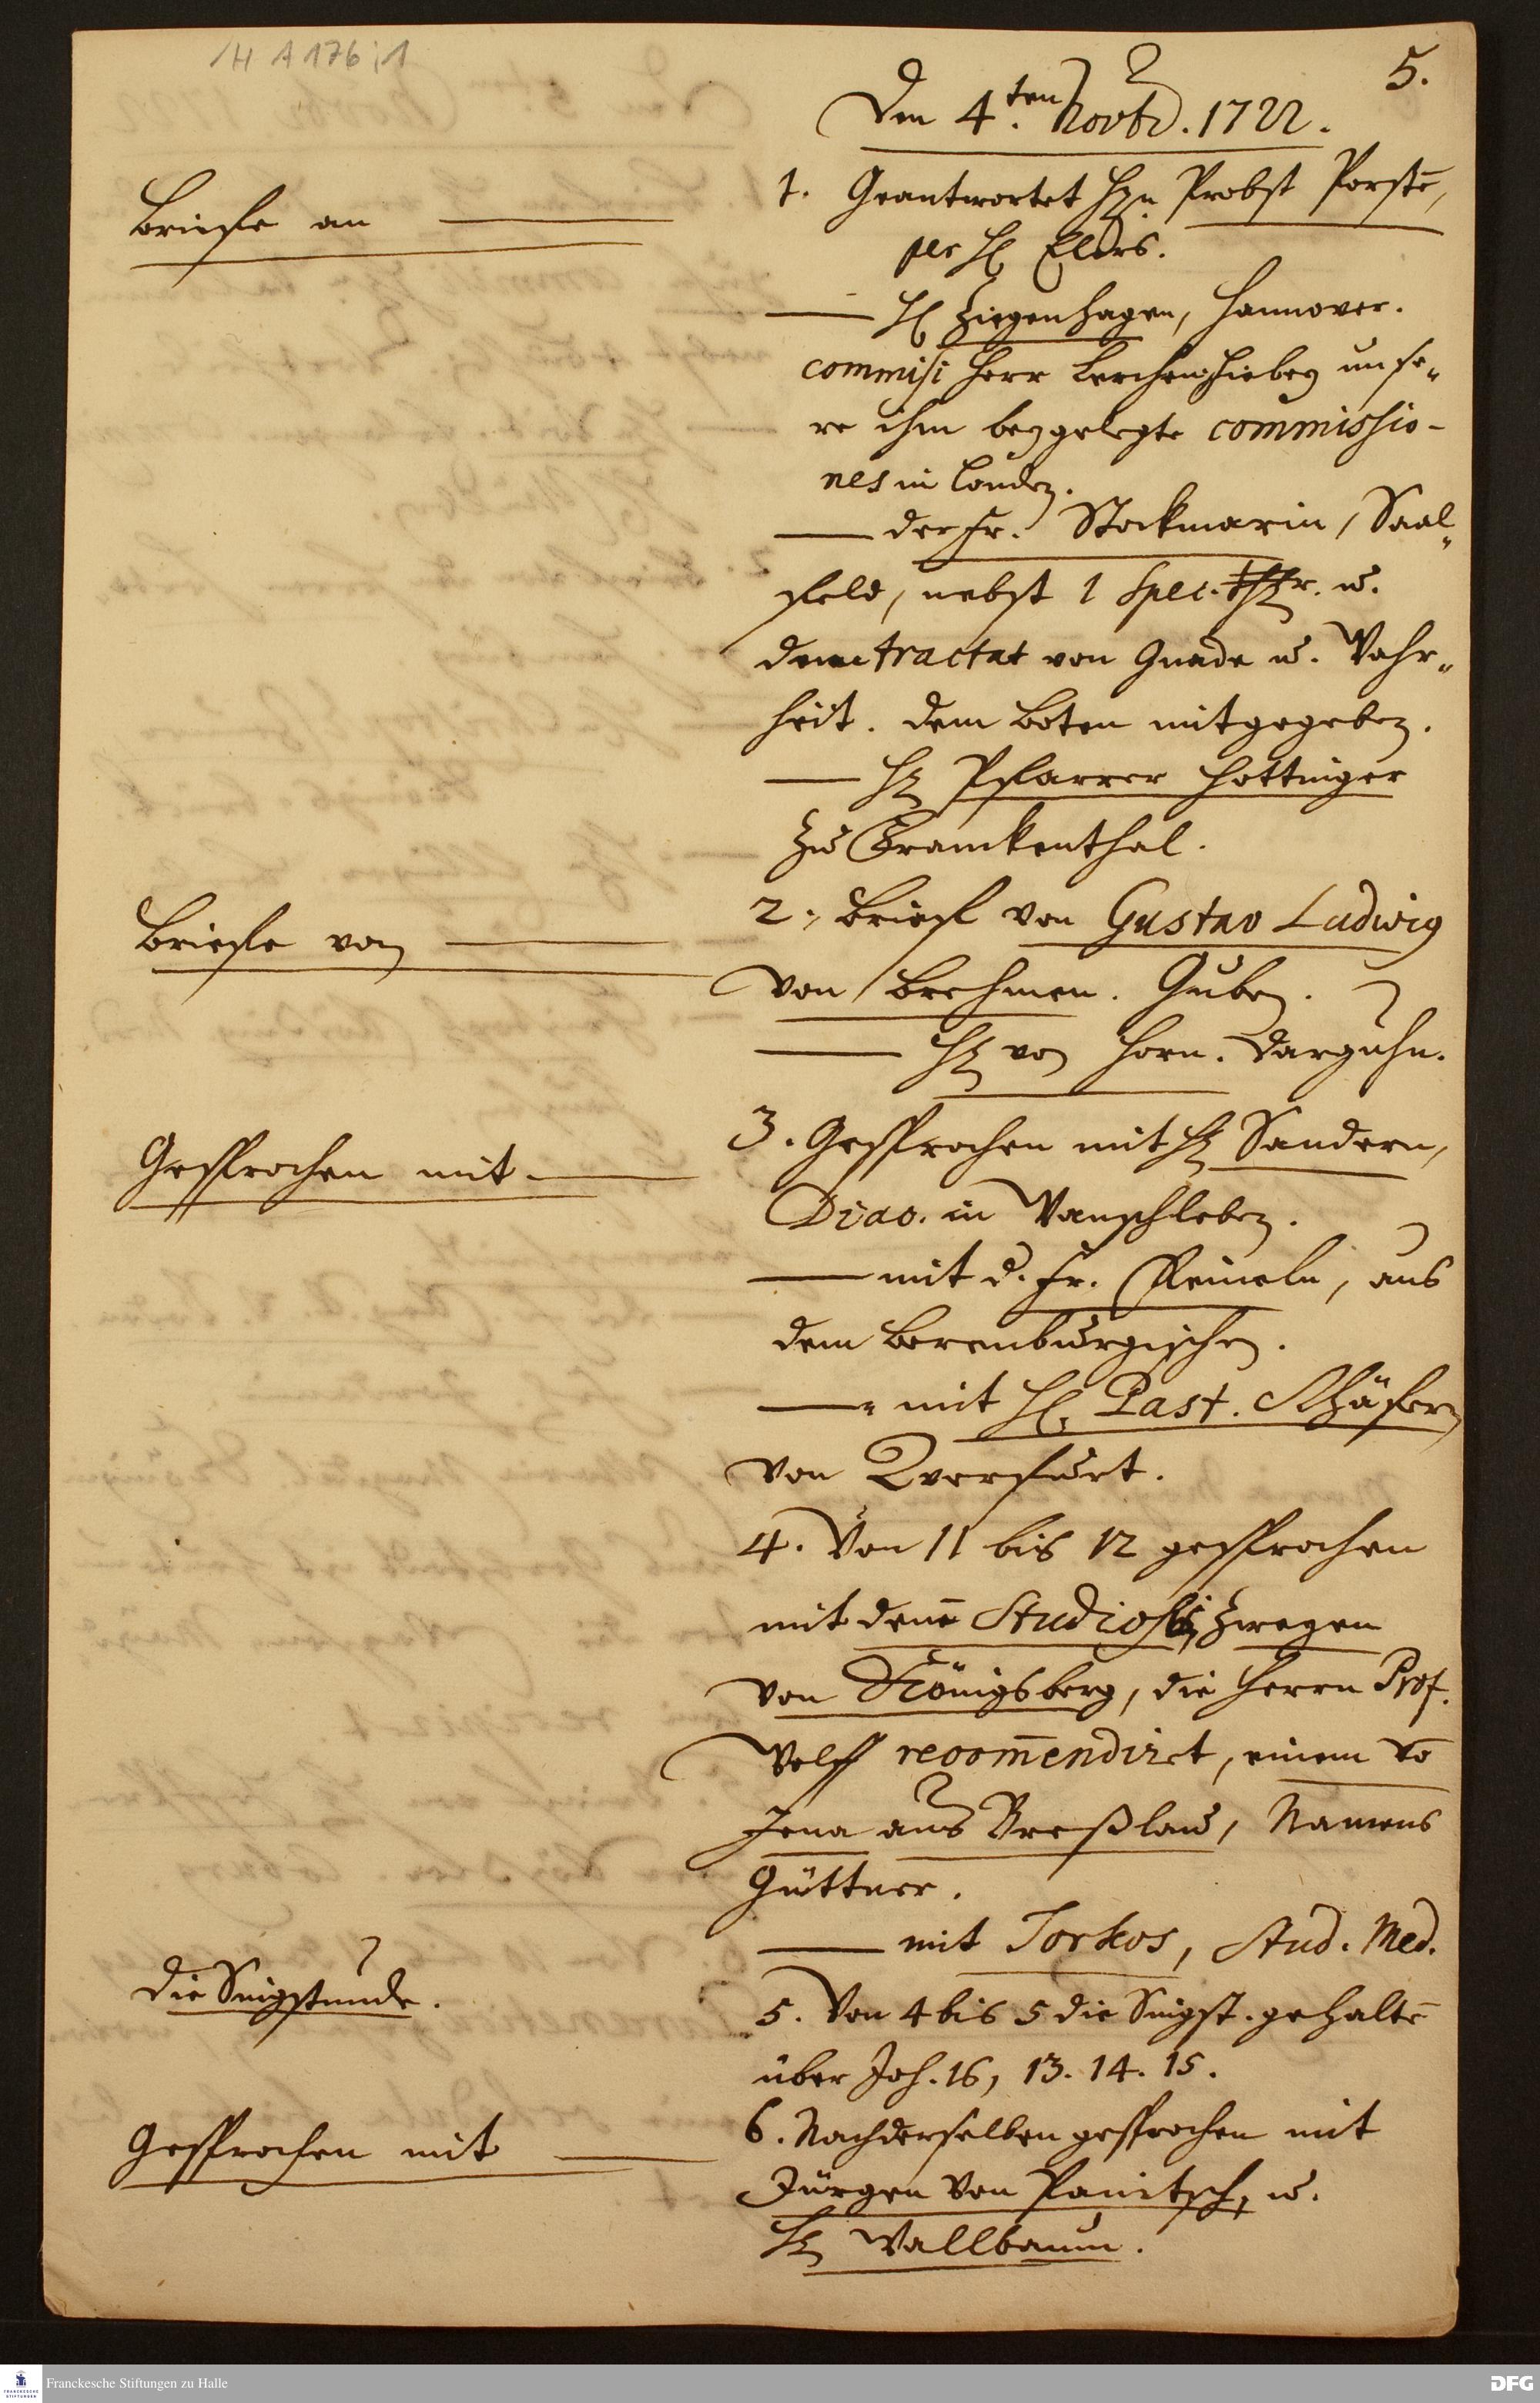 H A 176 : 1
5.
Den 4.ten Novbr. 1722.
Briefe an
1. Geantwortet Hrn Probst Porstē,
per H. Elers.
H. Ziegenhagen, Hannover.
commisi Herr unse-
re ihm beygelegte commissio-
nes in Londen.
der Fr. Stockmarin, Saal-
feld, nebst 1 Spec. Thlr. u.
dem tractat von Gnade u. Wahr-
heit. dem boten mitgegeben.
Hr Pfarrer Hottinger
zu Franckenthal.
Briefe von
2. Brief von Gustav Ludwig
von Brehmen. Guben.
Hr von Horn. Darguhn.
Gesprochen mit
3. Gesprochen mit Hr Sandern,
Diac. in Wanschleben.
mit d. Fr. aus
dem Berenburgischen.
mit H. Past. Schäfern
von Qverfurt.
4. Von 11 bis 12 gesprochen
mit denē Studiosis, zweyen
von Königsberg, die Herrn Prof.
Wolff recom̄endiret, einem vō
Jena aus Breßlau, Namens
Güttner.
mit Torkos, Stud. Med.
die Singstunde.
5. Von 4 bis 5 die Singst. gehaltē
über Joh. 16, 13. 14. 15.
Gesprochen mit
6. Nach derselben gesprochen mit
Jürgen von Panitsch, u.
Hr Wallbaum.
Franckesche Stiftungen zu Halle
DFG